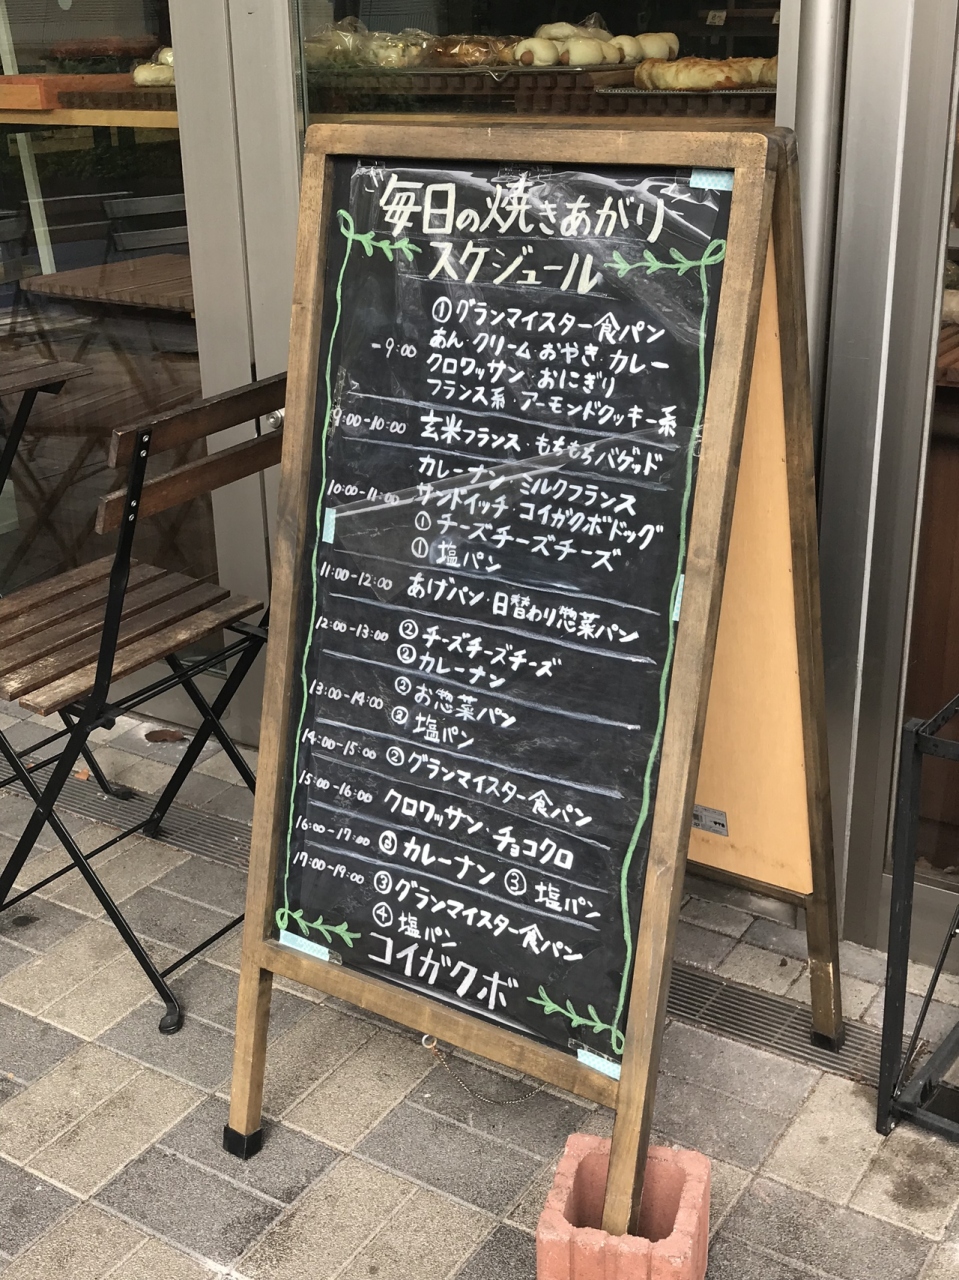 毎日の焼きあがり
スケジュール
①グランマイスター食パン
あん・クリーム・おやき・カレー
-9:00
クロワッサン・おにぎり
フランス系・アーモンドクッキー系
9:00-10:00 玄米フランス・もちもちバゲッド
カレーナン ミルクフランス
10:00-11:00 サンドイッチ・コイガクボドッグ
①チーズチーズチーズ
①塩パン
11:00-12:00 あげパン・日替わり惣菜パン
12:00-13:00 ②チーズチーズチーズ
②カレーナン
13:00-14:00 ②お惣菜パン
②塩パン
14:00-15:00 ②グランマイスター食パン
15:00-16:00 クロワッサン・チョコクロ
16:00-17:00 ③カレーナン ③塩パン
17:00-19:00 ③グランマイスター食パン
④塩パン
コイガクボ